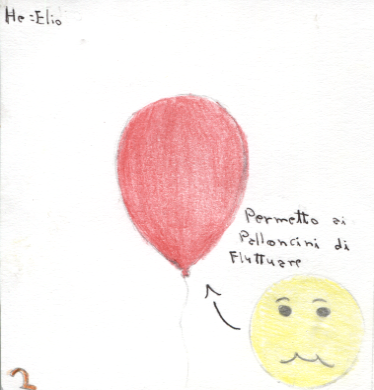 He=Elio
Permetto ai
Palloncini di
Fluttuare
2